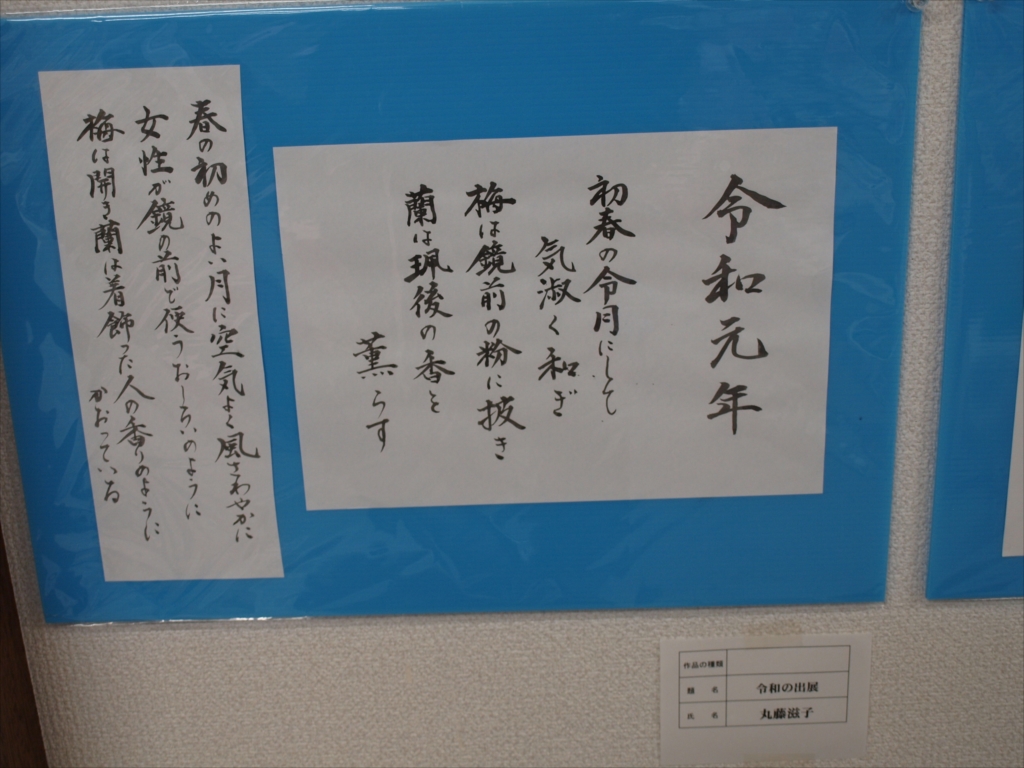 令和元年
初春の令月にして
気淑く和ぎ
梅は鏡前の粉に披き
蘭は珮後の香を
薫らす
春の初めのよい月に空気よく風さわやかに
女性が鏡の前で使うおしろいのように
梅は開き蘭は着飾った人の香りのように
かおっている
作品の種類
題 名 令和の出展
氏 名 丸藤滋子